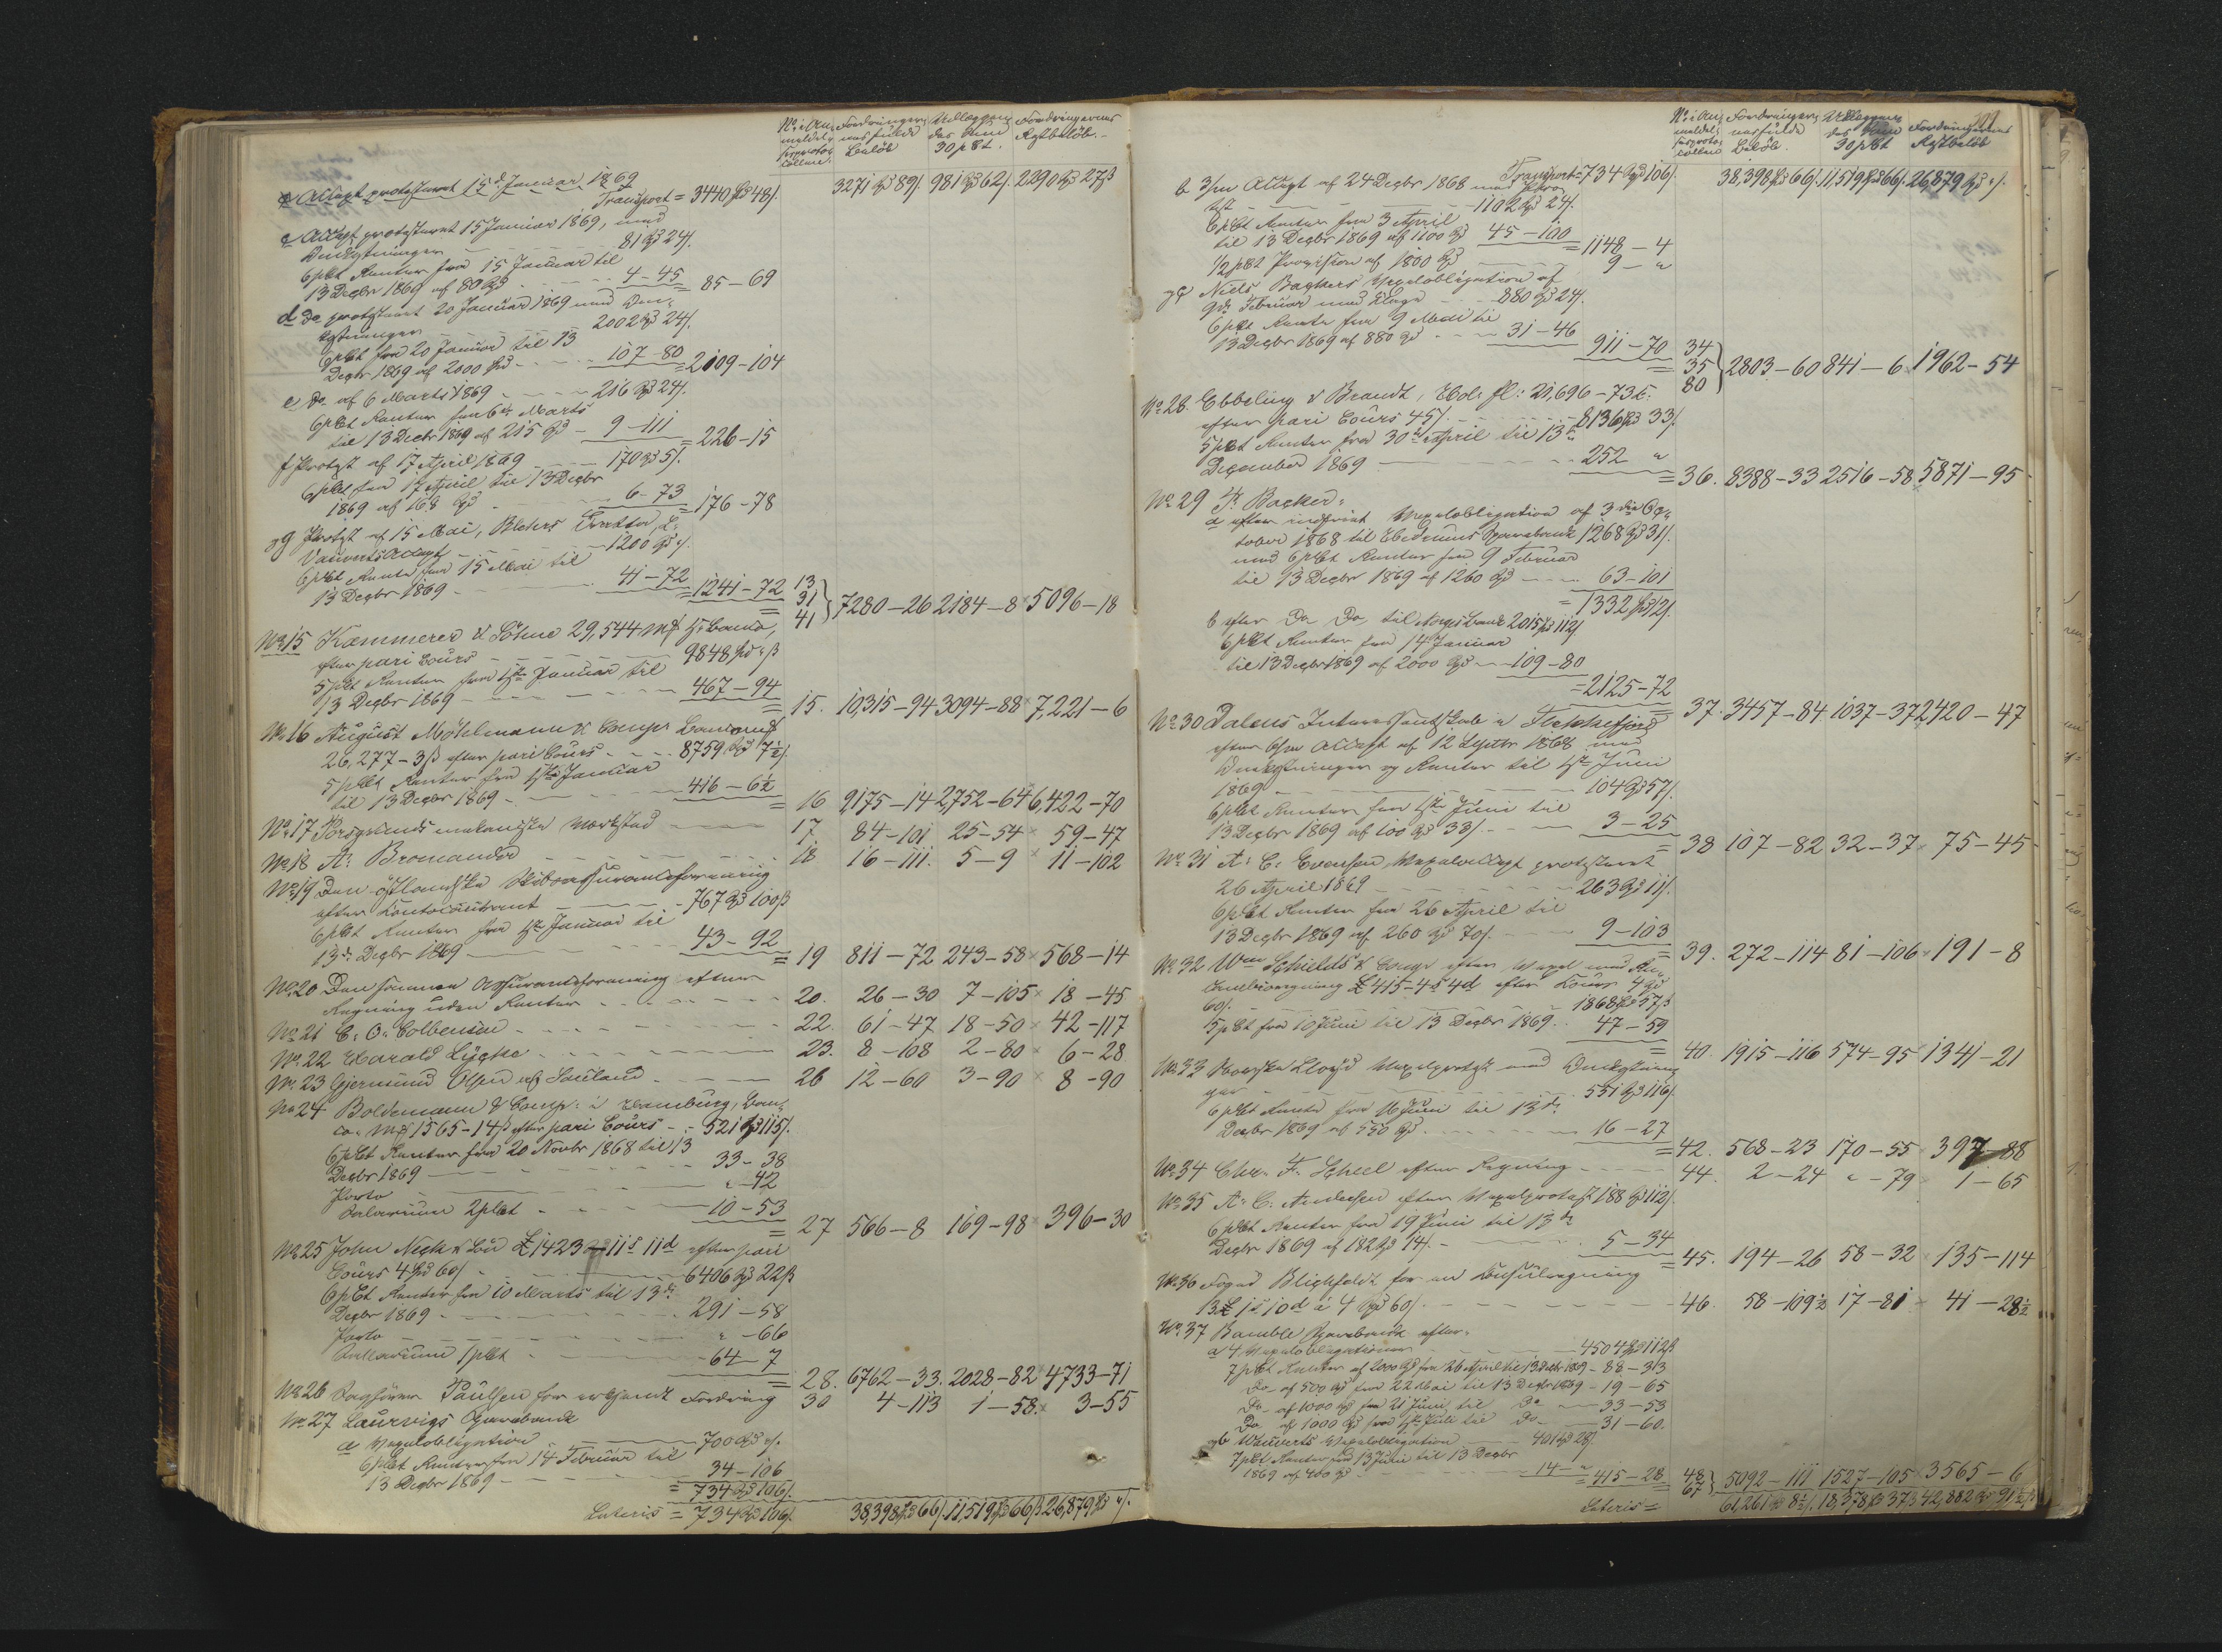 No i An- Fordringer- Udlægges Fordringernes
meldel- nes fulde das Rene Restbeløb.-
sesproto- Beløb 30 pCt.
collen.
c Accept protesteret 15d Januar 1869
Transport = 3440 Spd 48/. 3271 Spd 89/. 981 Spd 62/. 2290 Spd 27ß
c Accept protesteret 15 Januar 1869, med
Omkostninger 81 Spd 24/.
6 pCt Renter fra 15 Januar til
13 Decbr 1869 af 80 Spd 4-45 = 85-69
d Do protesteret 20 Januar 1869 med Om-
kostninger 2002 Spd 24/.
6 pCt fra 20 Januar til 13
Decbr 1869 af 2000 Spd 107-80 = 2109-104
e Do af 6 Marts 1869 216 Spd 24/.
6 pCt Renter fra 6te Marts
til 13 Decbr 1869 af 215 Spd - 9-111 = 226-15
f Protest af 17 April 1869 170 Spd 5/.
6 pCt fra 17 April til 13 Decbr
1869 af 168 Spd 6-73 = 176-78
og g Protest af 15 Mai,
Accept 1200 Spd "/.
6 pCt Rente fra 15 Mai til
13 Decbr 1869 - 41-72 = 1241-72 13 31 41 } 7280-26 2184-8 × 5096-18
No 15 Kæmmerer & Söhne 29,544 Mk Hb Banco,
efter pari Cours 9848 Spd "ß
5 pCt Renter fra 1ste Januar til
13 Decbr 1869 - 467-94 = 15. 10,315-94 3094-88 × 7,221-6
No 16 August Möhlmann & Comp. Banco Mk
26,277-3ß efter pari Cours - 8759 Spd 7½/.
5 pCt Renter fra 1ste Januar
til 13 Decbr 1869 - 416-6½ = 16 9,175-14 2,752-64 × 6,422-70
No 17 Porsgrunds mekaniske Værksted 17 84-101 25-54 × 59-47
No 18 A. Bromander 18 16-111. 5-9 × 11-102
No 19 Den østlandske Skibsassuranceforening
efter Contocourant 767 Spd 100ß
6 pCt Renter fra 1ste Januar til
13de Decbr 1869 43-92 = 19 811-72 243-58 × 568-14
No 20 Den samme Assuranceforening efter
Regning uden Renter 20. 26-30 7-105 × 18-45
No 21 C. O. Colbensen 22. 61-47 18-50 × 42-117
No 22 Harald Lyche 23. 8-108 2-80 × 6-28
No 23 Gjermund Olsen af Sauland 26 12-60 3-90 × 8-90
No 24 Boldemann & Comp: i Hamburg, Ban-
co. Mk 1565-14ß efter pari Cours - 521 Spd 115/.
6 pCt Renter fra 20 Novbr 1868 til 13
Decbr 1869 33-38
Porto "-42
Salarium 2 pCt 10-53
= 27 566-8 169-98 × 396-30
No 25 John Neck & Son £ 1423 11s 11d efter pari
Cours 4 Spd 60/. 6406 Spd 22ß
6 pCt Renter fra 10 Marts til 13de
Decbr 1869 - 291-58
Porto "-66
Salarium 1 pCt 64-7
= 28. 6762-33. 2028-82 × 4733-71
No 26 Sagfører Paulsen for erkjendt Fordring 30 4-113 1-58. × 3-55
No 27 Laurvigs Sparebank
a Vexelobligation 700 Spd "/.
6 pCt Renter fra 14 Februar til
13 Decbr 1869 34-106
= 734 Spd 106/.
Lateris = 734 Spd 106/. 38,398 Spd 66/. 11,519 Spd 66ß 26,879 Spd "/.
No i An- Fordringer- Udlægges Fordringernes
meldel- nes fulde das Rene Restbeløb
sesproto- Beløb. 30 pCt
collen
Transport = 734 Spd 106/. 38,398 Spd 66/. 11,519 Spd 66/. 26,879 Spd "/.
b 3/m Accept af 24 Decbr 1868 med Pro-
test 1102 Spd 24/.
6 pCt Renter fra 3 April
til 13 Decbr 1869 af 1100 Spd 45-100 = 1148-4
½ pCt Provision af 1800 Spd 9-"
og c Niels Backers Vexelobligation af
9de Februar med Klage 880 Spd 24/.
6 pCt Rente fra 9 Mai til
13 Decbr 1869 af 880 Spd 31-46
911-70 = 34 35 80 } 2803-60 841-6 × 1962-54
No 28. Ebbeling & Brandt, Hol. fl: 21,696-73c.
efter pari Cours 45/. 8136 Spd 33/.
5 pCt Renter fra 30te April til 13de
December 1869 252 "
= 36. 8388-33 2516-58 × 5871-95
No 29 F. Backer:
a efter indfriet Vexelobligation af 3die Oc-
tober 1868 til Sparebank 1268 Spd 31/.
med 6 pCt Renter fra 9 Februar
til 13 Decbr 1869 af 1260 Spd 63-101
= 1332 Spd 12/.
b efter Do Do til Norges Bank 2015 Spd 112/.
6 pCt Renter fra 14 Januar
til 13 Decbr 1869 af 2000 Spd 109-80
= 2125-72
= 37. 3457-84 1037-37 × 2,420-47
No 30 Dalens Interessentskab i Flekkefjord
efter 6/m Accept af 12 Septbr 1868 med
Omkostninger og Renter til 1ste Juni
1869 104 Spd 57/.
6 pCt Renter fra 1ste Juni til
13 Decbr 1869 af 100 Spd 38/. 3-25
= 38 107-82 32-37 × 75-45
No 31 A. C. Evensen Vexelaccept protesteret
26 April 1869 263 Spd 11/.
6 pCt Renter fra 26 April til
13 Decbr 1869 af 260 Spd 70/. 9-103
= 39. 272-114 81-106 × 191-8
No 32 Wm Schields & Comp efter Vexel med Re-
£ 415-4s 4d efter Cours 4 Spd
60/. 1868 Spd 57ß
5 pCt fra 10 Juni til 13 Decbr 1869. 47-59
= 40. 1915-116 574-95 × 1341-21
No 33 Norske Lloyd Vexelprotest med Omkostnin-
ger 551 Spd 116/.
6 pCt Rente fra 16 Juni til 13de
Decbr 1869 af 550 Spd 16-27
= 42. 568-23 170-55 397-88
No 34 Chr. F. Scheel efter Regning 44. 2-24 "-79 1-65
No 35 A. C. Andersen efter Vexelprotest 188 Spd 112/.
6 pCt Renter fra 19 Juni til 13de
Decbr 1869 af 182 Spd 14/. 5-34
= 45. 194-26 58-32 × 135-114
No 36 Foged Blichfeldt for en Konsulregning
13 £ 1s 10d à 4 Spd 60/. 46. 58-109½ 17-81 × 41-28½
No 37 Bamble Sparebank efter:
a 4 Vexelobligationer 4504 Spd 112ß
7 pCt Renter af 2000 Spd fra 26 April til 13 Decbr 1869 - 88-313
Do af 500 Spd fra 22 Mai til 13 Decbr 1869 - 19-65
Do af 1000 Spd fra 21 Juni til Do 33-53
Do af 1000 Spd fra 1ste Juli til Do 31-60.
og b Vexelobligation 401 Spd 28/.
7 pCt Renter fra 13 Juni til 13 Decbr
1869 af 400 Spd 14-" = 415-28 48 67 } 5092-111 1527-105 3565-6
Lateris = 61,261 Spd 8½/. 18,378 Spd 37ß 42,882 Spd 91½ß